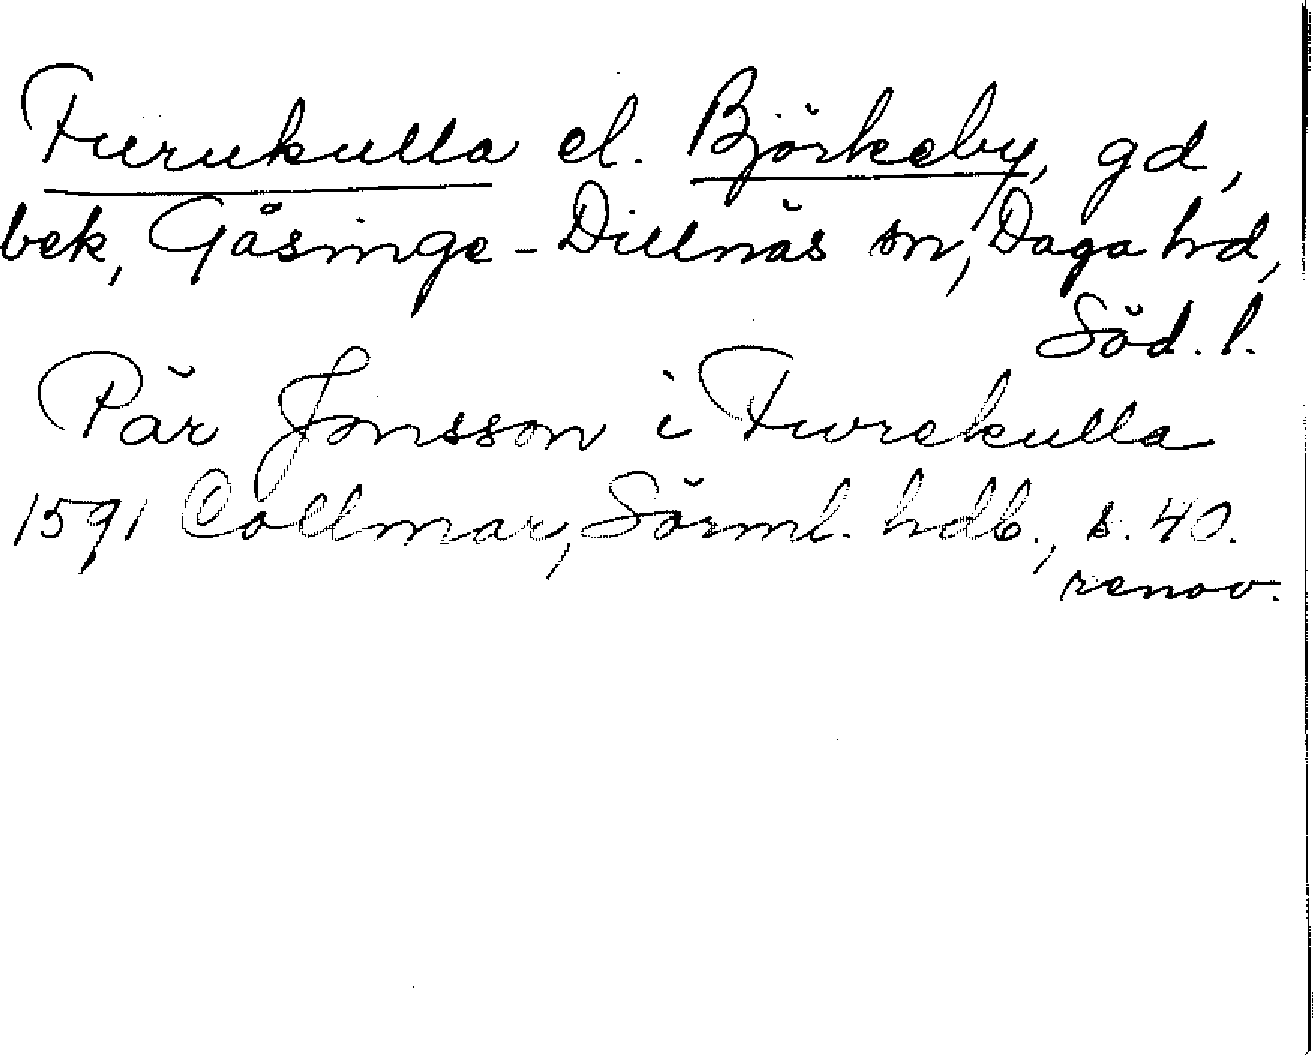 Furukulla el. Björkeby, gd,
bek, Gåsinge-Dillnäs sn, Daga hd,
Söd. l.
Pär Jonsson i Furekulla
1591 Collmar, Sörml. hdb., s. 40.
renov.